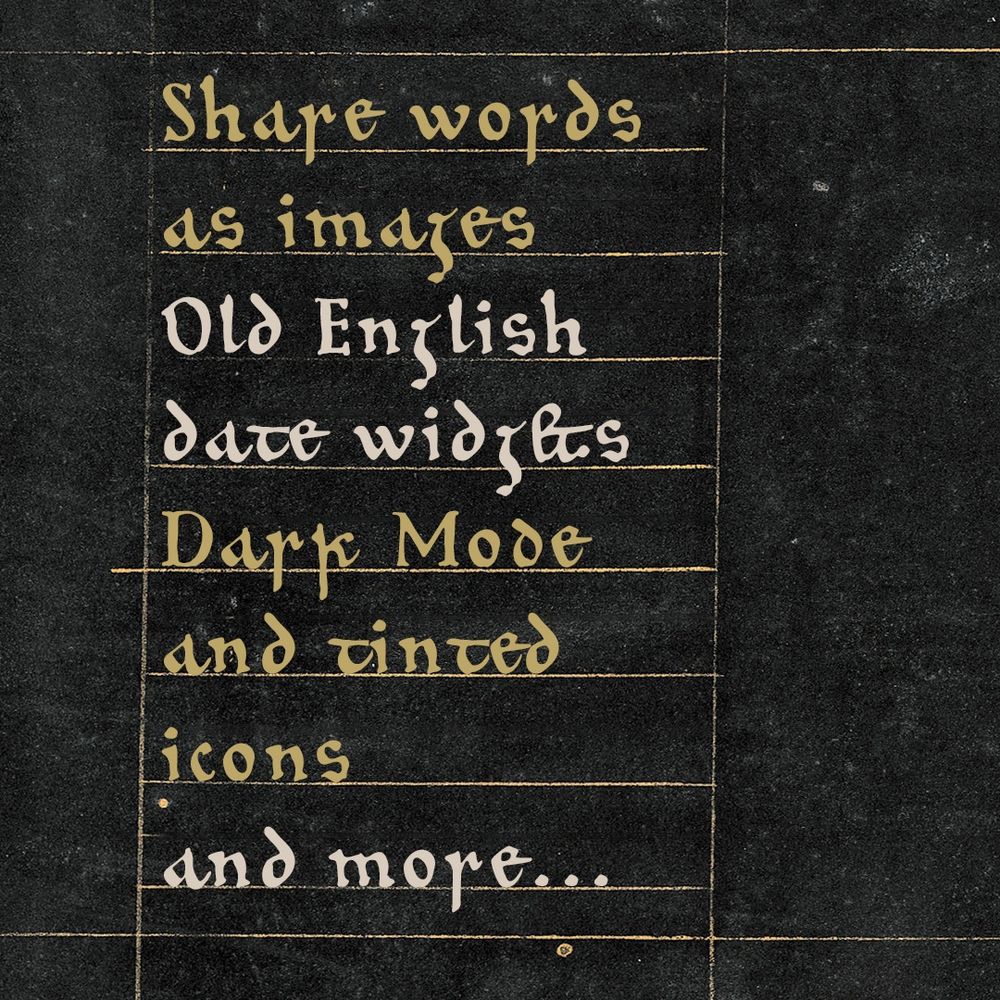 Share words
as images
Old English
date widgets
Dark Mode
and tinted
icons
and more...